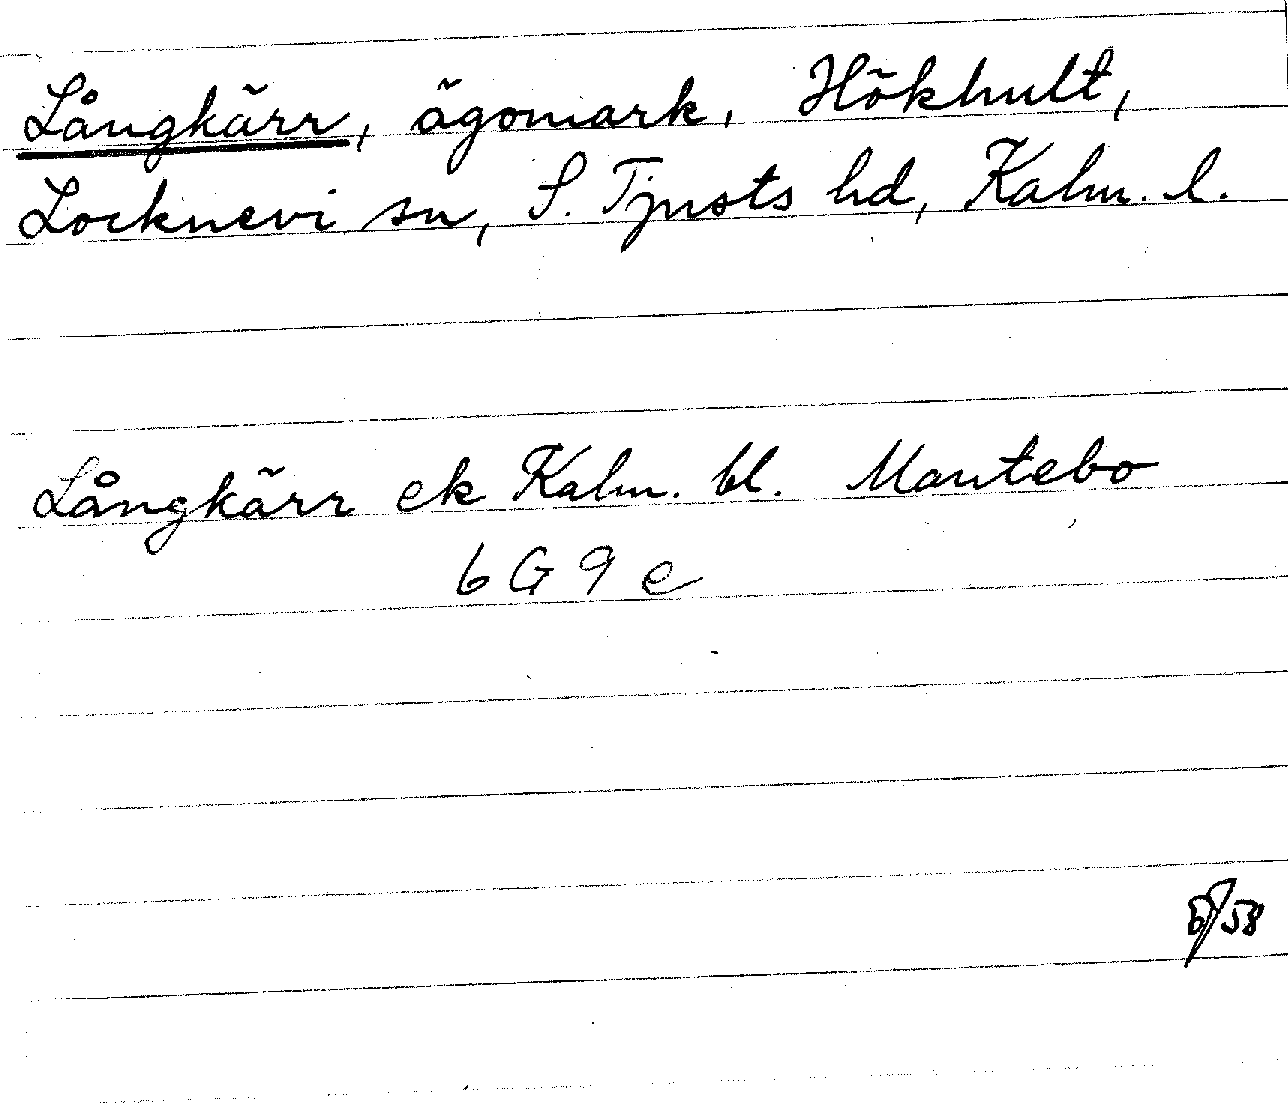 Långkärr, ägomark, Hökhult,
Locknevi sn, S. Tjusts hd, Kalm. l.
Långkärr ek Kalm. bl. Mantebo
6 G 9 e
/58